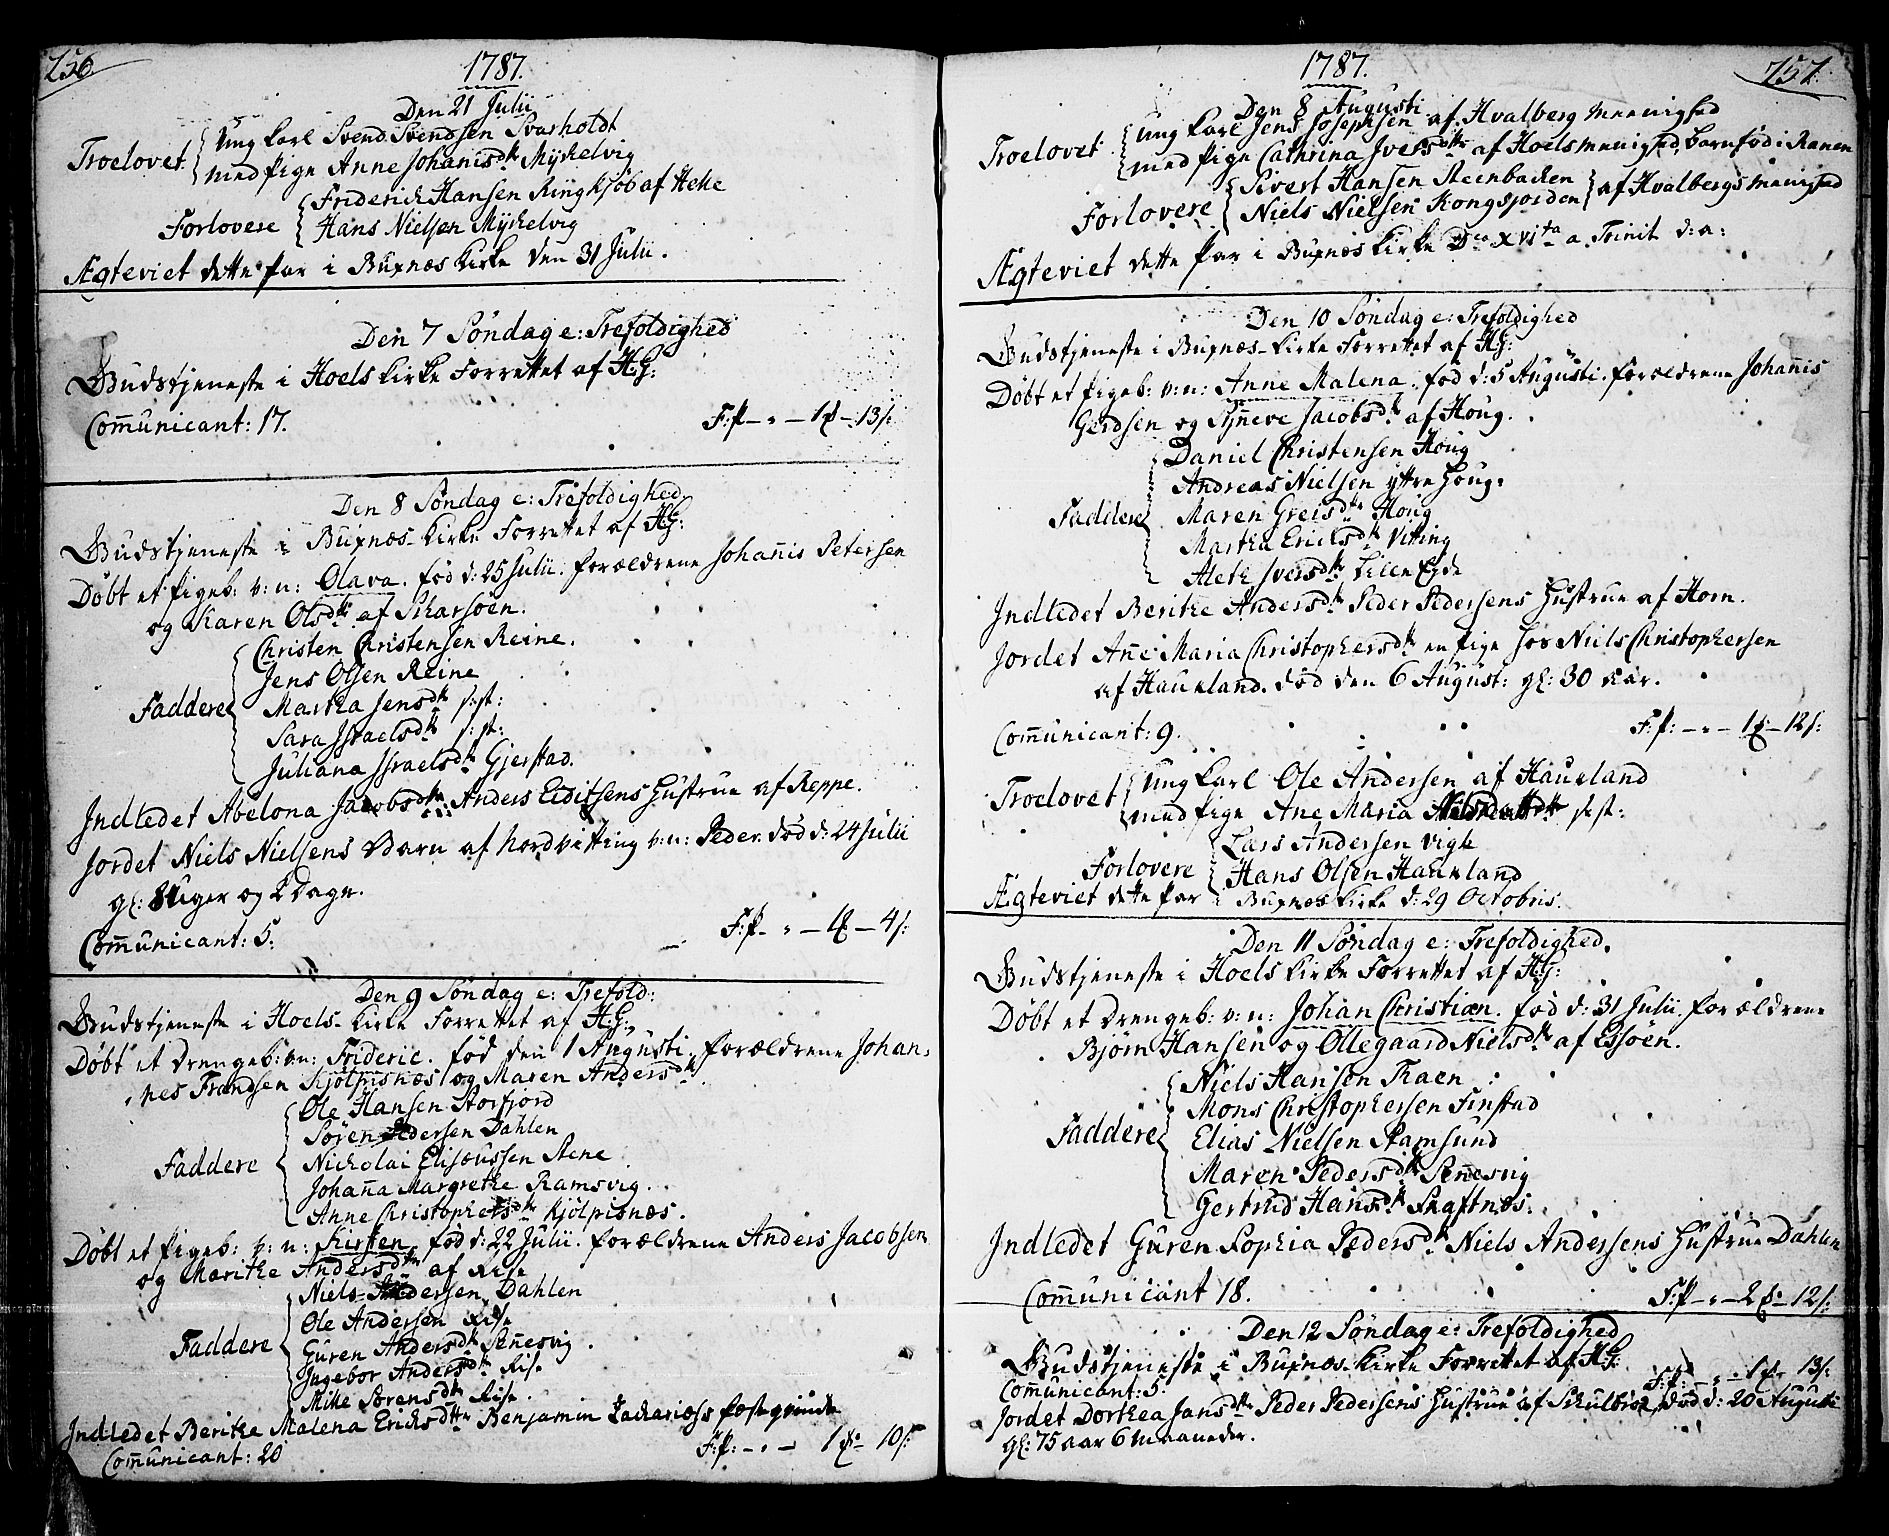 256.
1787.
Den 21 Julii
Troelovet
Ung Karl Svend Svendsen Svarholdt
med Pige Anne Johanisdtr Myhelvig
Forlovere
Friderich Hansen Ringkjøb af Helle
Hans Nielsen Myhelvig
Ægteviet dette Par i Buxnæs Kirke den 31 Julii.
Den 7 Søndag e: Trefoldighed
Gudstjeneste i Hoels Kirke Forrettet af HG:
Communicant: 17.
F:P - " - 1 - 13 s:
Den 8 Søndag e: Trefoldighed
Gudstjeneste i Buxnæs Kirke Forrettet af HG:
Døbt et Pigeb: v: n: Olava. fød d: 25 Julii. forældrene Johannis Petersen
og Karen Olsdtr af Skarsøen.
Faddere
Christen Christensen Reine.
Jens Olsen Reine
Martha Jensdtr sst:
Sara Israelsdtr s: st:
Juliana Israelsdtr Gjerstad.
Indledet Abelona Jacobsdtr Anders Eiditsens Hustrue af Reppe.
Jordet Niels Nielsens Barn af Nordvitting v: n: Peder. død d: 24 Julii
gl: 8 Uger og 2 Dage.
Communicant: 5.
F:P - " - - 4 s:
Den 9 Søndag e: Trefold:
Gudstjeneste i Hoels Kirke Forrettet af HG:
Døbt et drengeb: v: n: Frideric. fød den 1 Augusti. forældrene Johan,
nes Frandsen Kjølpisnæs og Maren Andersdtr
Faddere
Ole Hansen Storfjord
Søren Pedersen Dahlen
Nicholai Elisæussen Stene
Johanna Margrethe Ramsvig.
Anne Christophersdtr Kjølpisnæs.
Døbt et Pigeb: v: n: Kirsten. fød d: 22 Julii. forældrene Anders Jacobsen
og Marithe Andersdtr af Rise
Faddere
Niels Andersen Dahlen
Ole Andersen Rise
Guren Andersdtr Sennesvig.
Ingebor Andersdtr Rise
Mille Sørensdtr Rise
Indledet Berithe Malena Ericksdtr Benjamin Zachariæs festeqvinde
Communicant: 20
F:P: - " - 1 - 10 s:
1787.
257.
Den 8 Augusti
Troelovet
Ung Karl Jens Josephsen af Hvalberg Meenighed
med Pige Cathrina Iversdtr af Hoels Menighed, Barnfød i Ranen
Forlovere
Sivert Hansen Steenbacken
Niels Nielsen Kongsjorden
af Hvalbergs Menighed
Ægteviet dette Par i Buxnæs Kirke Dca XVIta a Trinit d: a:
Den 10 Søndag e: Trefoldighed
Gudstjeneste i Buxnæs Kirke Forrettet af HG:
Døbt et Pigeb: v: n: Anne Malena. fød d: 5 Augusti. forældrene Johannis
Gerdsen og Synneve Jacobsdtr af Houg.
Faddere
Daniel Christensen Houg
Andreas Nielsen yttre Houg.
Maren Greisdtr Houg
Martha Ericksdtr Vitting
Aleth Iversdtr Lille Eide
Indledet Berithe Andersdtr Peder Pedersens Hustrue af Horn.
Jordet Anne Maria Christophersdtr en Pige hos Niels Christophersen
af Haukland. død den 6 August: gl: 30 aar.
Communicant: 9.
F:P: - " - 1 - 12 s:
Troelovet
Ung Karl Ole Andersen af Haukland
med Pige Ane Maria Nielsdatter sst:
Forlovere
Lars Andersen Vigle
Hans Olsen Haukland
Ægteviet dette Par i Buxnæs Kirke d: 29 Octobris.
Den 11 Søndag e: Trefoldighed.
Gudstjeneste i Hoels Kirke Forrettet af HG:
Døbt et drengeb: v: n: Johan Christian. fød d: 31 Julii. forældrene
Bjørn Hansen og Ollegaard Nielsdtr af Essøen.
Faddere
Niels Hansen Traen
Mons Christophersen Finstad
Elias Nielsen Stamsund
Maren Pedersdtr Sennesvig
Gertrud Hansdtr Skaftnæs.
Indledet Guren Sophia Pedersdtr Niels Andersens Hustrue Dahlen
Communicant 18.
F:P - " - 2 - 12 s:
Den 12 Søndag e: Trefoldighed
Gudstjeneste i Buxnæs Kirke Forrettet af HG:
Communicant: 5.
F:P: - " - 1 - 13 s:
Jordet Dorthea Jansdtr Peder Pedersens Hustrue af Skulbroe, død d: 20 Augusti
gl: 75 aar 6 Maaneder.